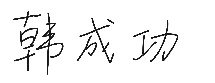 韩成功